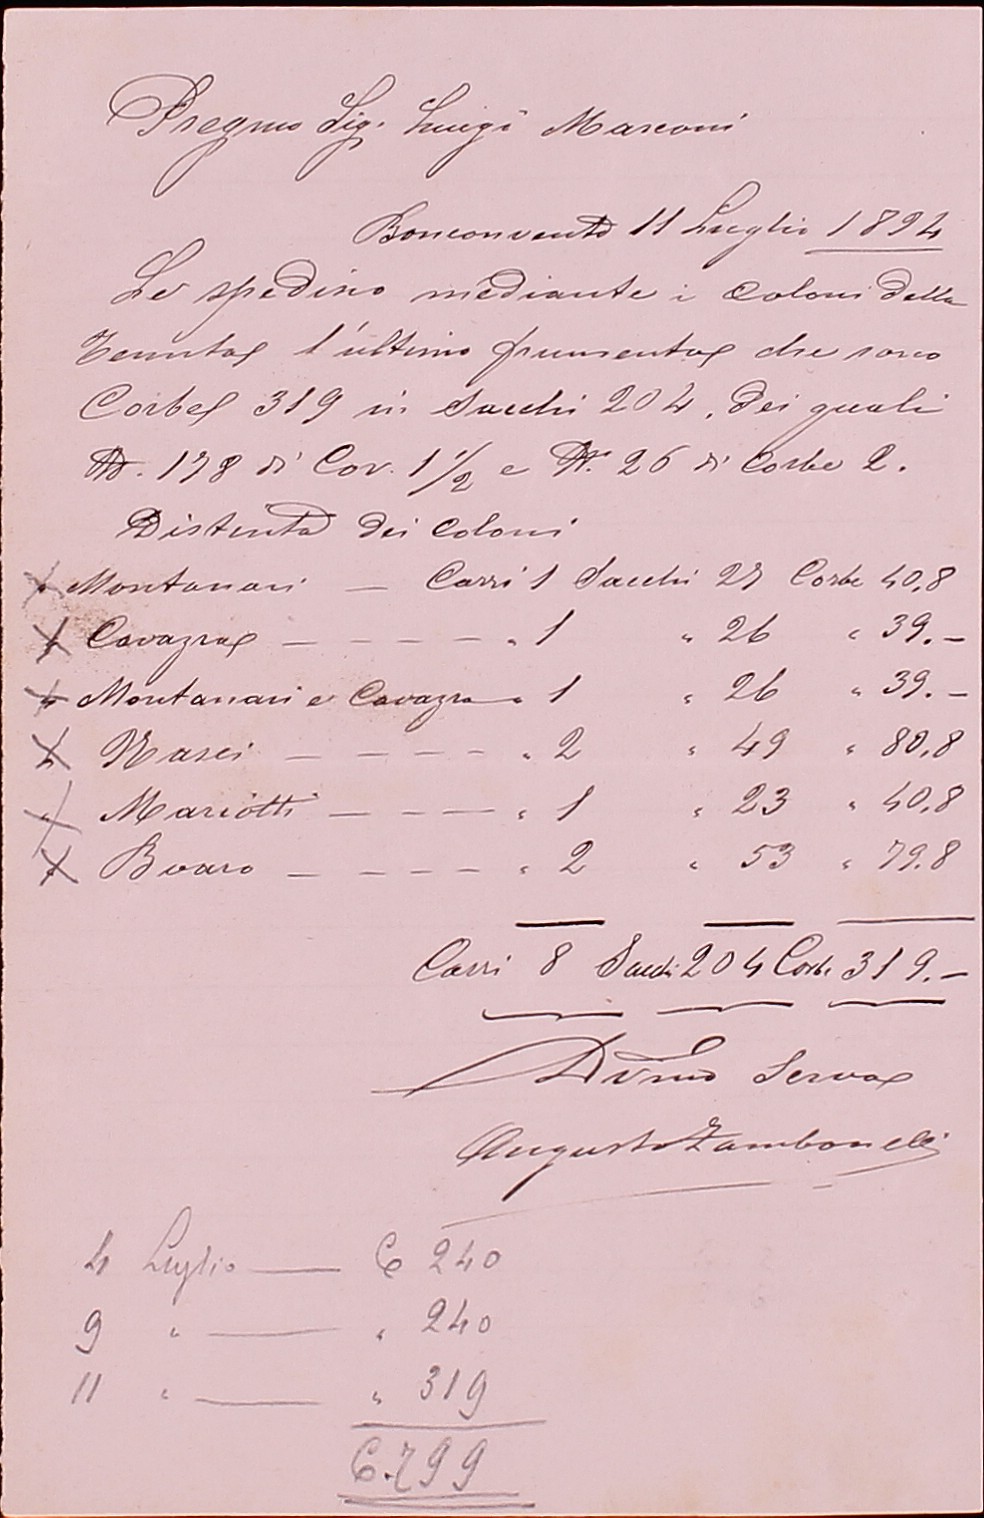 Pregmo Sig. Luigi Marconi
Bonconvento 11 Luglio 1894
Le spedisco mediante i Coloni della
Tenuta l'ultimo frumento che sono
Corbe 319 in Sacchi 204, dei quali
N. 178 di Cor. 1 1/2 e N. 26 di Corbe 2.
Distinta dei Coloni
Montanari — Carri 1 Sacchi 27 Corbe 40,8
Cavazza — — — — " 1 " 26 " 39. —
Montanari e Cavazza " 1 " 26 " 39. —
Masei — — — — " 2 " 49 " 80,8
Mariotti — — — — " 1 " 23 " 40,8
Bvaro — — — — " 2 " 53 " 79.8
Carri 8 Sacchi 204 Corbe 319. —
Dvmo Servo
Augusto Zambonelli
4 Luglio — C 240
9 " — " 240
11 " — " 319
C. 799